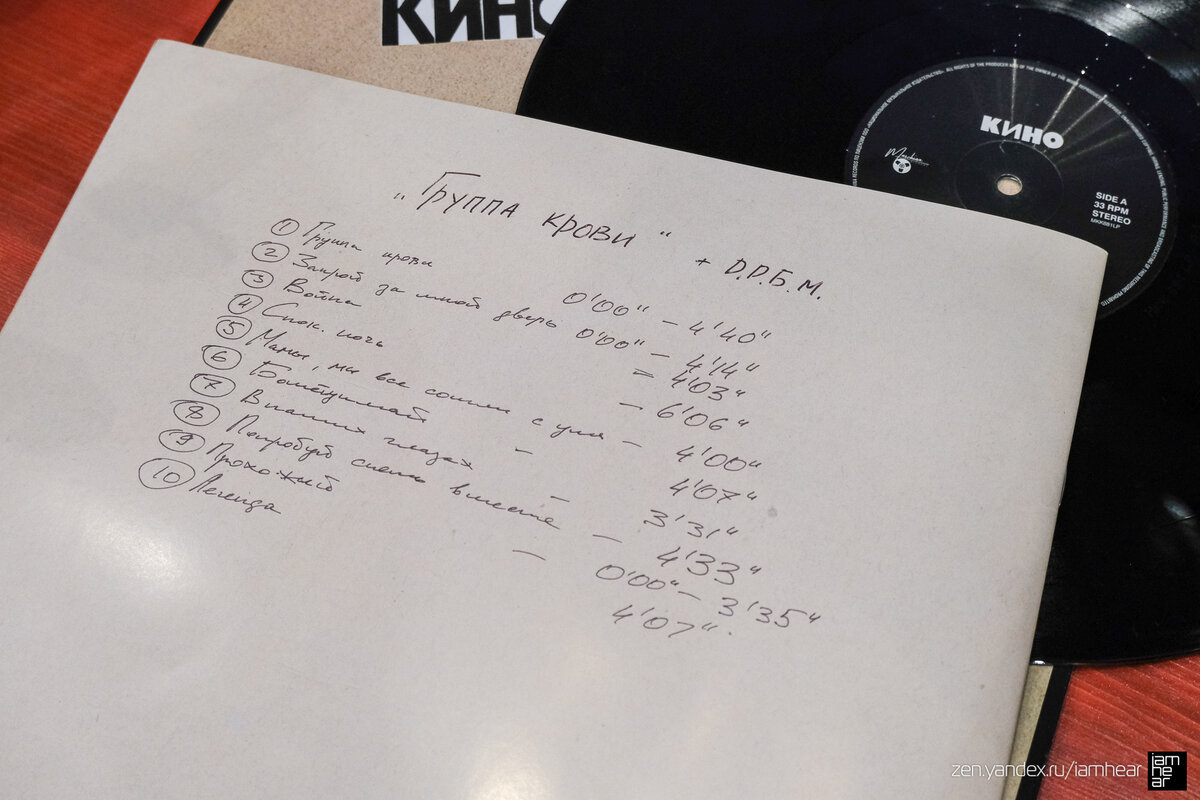 КИНО
КИНО
SIDE A
33 RPM
STEREO
„Группа крови“ + Д.Р.Б.М.
1 Группа крови 0'00" – 4'40"
2 Закрой за мной дверь 0'00" – 4'14"
3 Война = 4'03"
4 Спок. ночь – 6'06"
5 Мамы, мы все сошли с ума – 4'00"
6 Бошетунмай – 4'07"
7 В наших глазах – 3'31"
8 Попробуй спеть вместе – 4'33"
9 Прохожий 0'00" – 3'35"
10 Легенда – 4'07".
zen.yandex.ru/iamhear
iam
he
ar